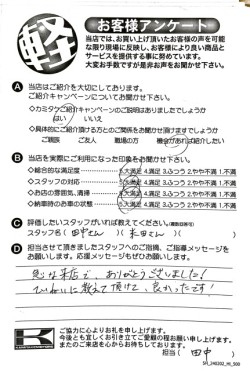 軽
お客様アンケート
当店では、お買い上げ頂いたお客様の声を可能
な限り現場に反映し、お客様により良い商品と
サービスを提供する事に努めています。
大変お手数ですが是非お声をお聞かせ下さい。
A 当店はご紹介を大切にしております。
ご紹介キャンペーンについてお聞かせ下さい。
◇カミタケご紹介キャンペーンのご説明はありましたでしょうか
はい いいえ
◇具体的にご紹介頂ける方とのご関係をお聞かせ頂けますでしょうか
ご親戚 ご友人 職場の方 機会があれば紹介したい
B 当店を実際にご利用になった印象をお聞かせ下さい。
◇総合的な満足度 5.大満足 4.満足 3.ふつう 2.やや不満 1.不満
◇スタッフの対応 5.大満足 4.満足 3.ふつう 2.やや不満 1.不満
◇お店の雰囲気、清掃 5.大満足 4.満足 3.ふつう 2.やや不満 1.不満
◇納車時のお車の状態 5.大満足 4.満足 3.ふつう 2.やや不満 1.不満
C 評価したいスタッフがいれば教えてください。(複数回答可)
スタッフ名(田中さん)(末田さん)( )
D 担当させて頂きましたスタッフへのご指摘、ご指導メッセージを
お願いします。応援メッセージもぜひお願いします。
急な来店で、ありがとうございました!
ていねいに教えて頂けて、良かったです!
ご協力に心よりお礼を申し上げます。
今後とも宜しくお引き立てご愛顧の程お願い申し上げます。
またのご来店を心からお待ちしております。
担当( 田中 )
SH_240202_IH_500